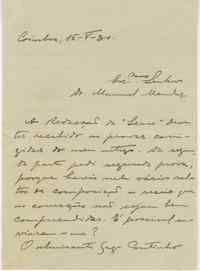 Coimbra, 15-V-30.
Exmo Senhor
Dr. Manuel Mendes
A Redacção da "Seara" deve
ter recebido as provas corri-
gidas do meu artigo. Da segun-
da parte pedi segunda prova,
porque havia nela vários saltos
de composição e receio que
as correcções não sejam bem
compreendidas. É possível en-
viarem-ma?
O admirador